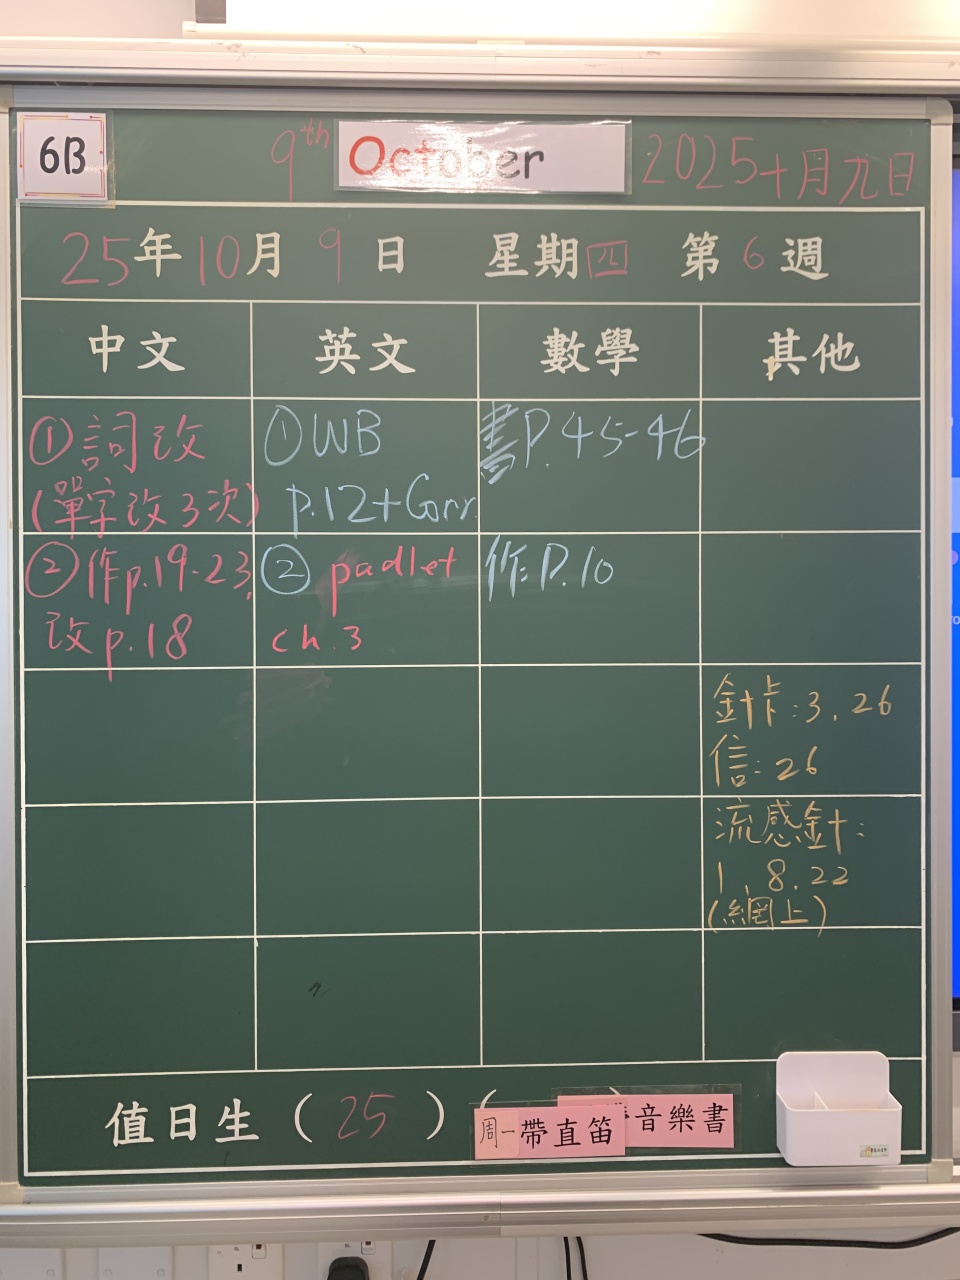 6B
9th October 2025十月九日
25年10月9日 星期四 第6週
中文 英文 數學 其他
①詞改
(單字改3次)
①WB
p.12+Corr.
書P.45-46
②作p.19-23,
改p.18
②padlet
ch.3
作P.10
針卡:3,26
信:26
流感針:
1,8.22
(網上)
值日生(25)(
周一帶直笛
音樂書